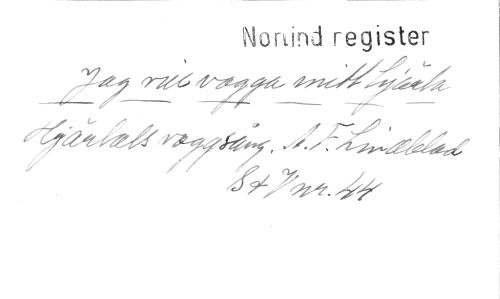 Norlind register
Jag vill vagga mitt hjärta
Hjärtats vaggsång. A. F. Lindblad
S & V nr. 44